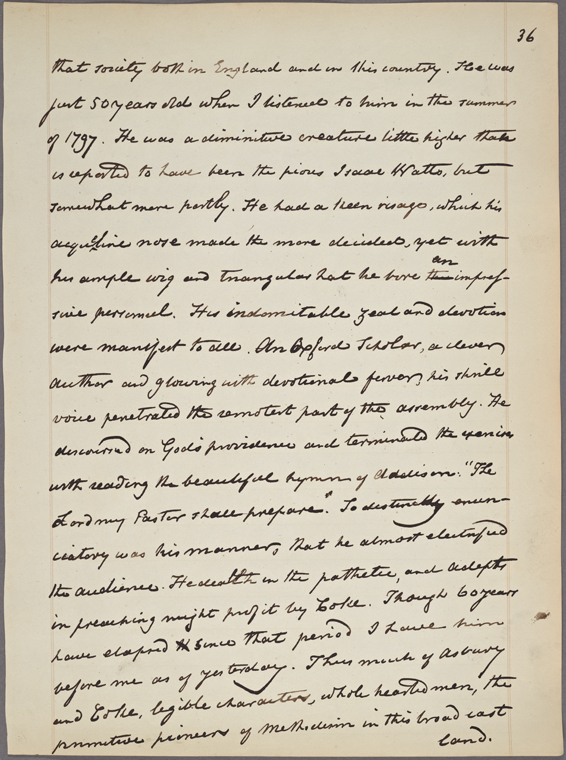 36
that society both in England and in this country. He was
just 50 years old when I listened to him in the summer
of 1797. He was a diminitive creature little higher than
is reported to have been the pious Isaac Watts, but
somewhat more portly. He had a keen visage, which his
acquiline nose made the more decided, yet with
his ample wig and triangular hat he bore the an impres-
sive personnel. His indomitable zeal and devotion
were manifest to all. An Oxford Scholar, a clever
author and glowing with devotional fervor, his shrill
voice penetrated the remotest part of the assembly. He
discoursed on God's providence and terminated the exercise
with reading the beautiful hymn of Addison. "The
Lord my Pastor shall prepare". So distinctly enun-
ciatory was his manner, that he almost electrified
the audience. He dealth in the pathetic, and adepts
in preaching might profit by Coke. Though 60 years
have elapsed since that period I have him
before me as of yesterday. Thus much of Asbury
and Coke, legible characters, whole hearted men, the
primitive pioneers of Methodism in this broad cast
land.